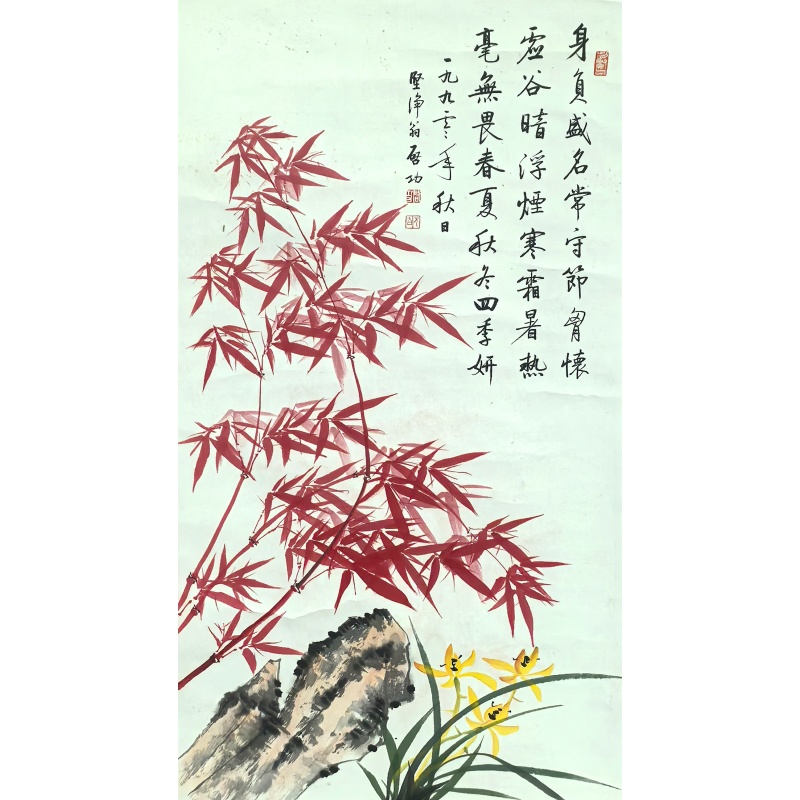 身負盛名常守節胷懷
虛谷暗浮煙寒霜暑熱
毫無畏春夏秋冬四季妍
一九九零年秋日
堅淨翁啓功